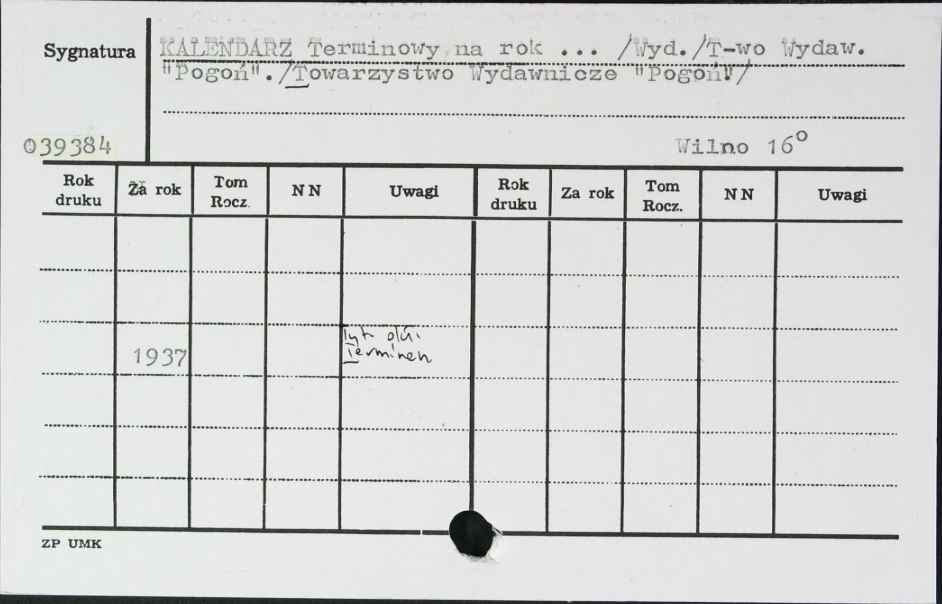 Sygnatura KALENDARZ Terminowy na rok ... /Wyd./T-wo Wydaw.
"Pogoń"./Towarzystwo Wydawnicze "Pogoń"/
039384 Wilno 16°
Rok druku Za rok Tom Rocz. NN Uwagi Rok druku Za rok Tom Rocz. NN Uwagi
Tyt.
1937 Terminen
ZP UMK